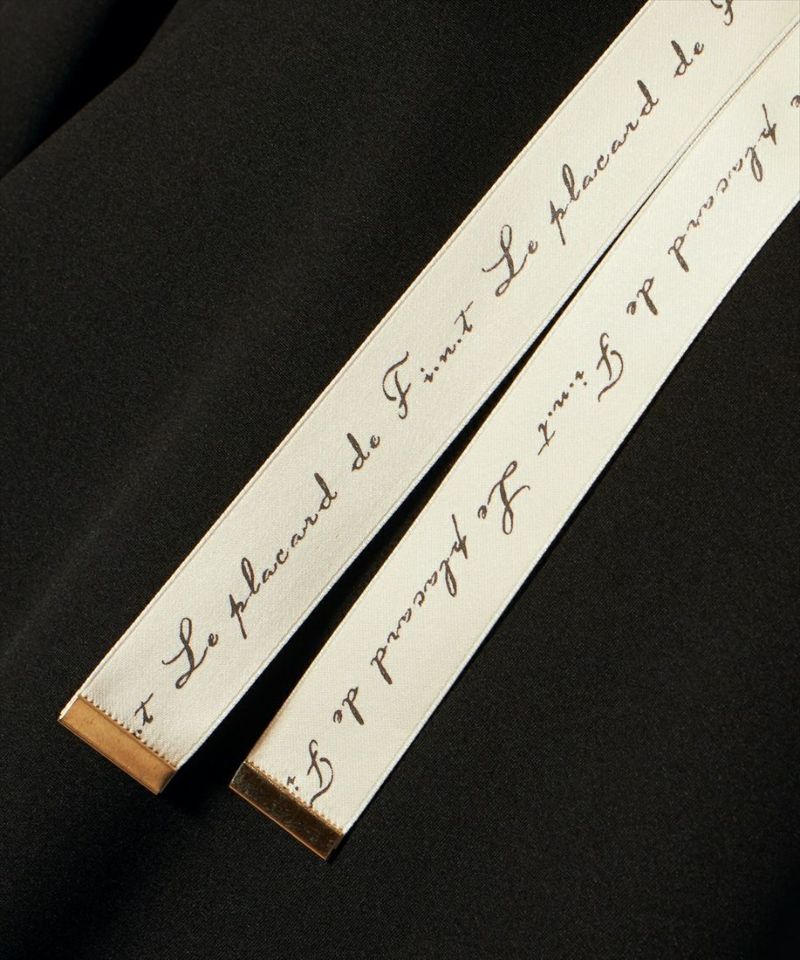 t Le placard de F.i.n.t Le placard de F
e placard de F.i.n.t Le placard de F.i